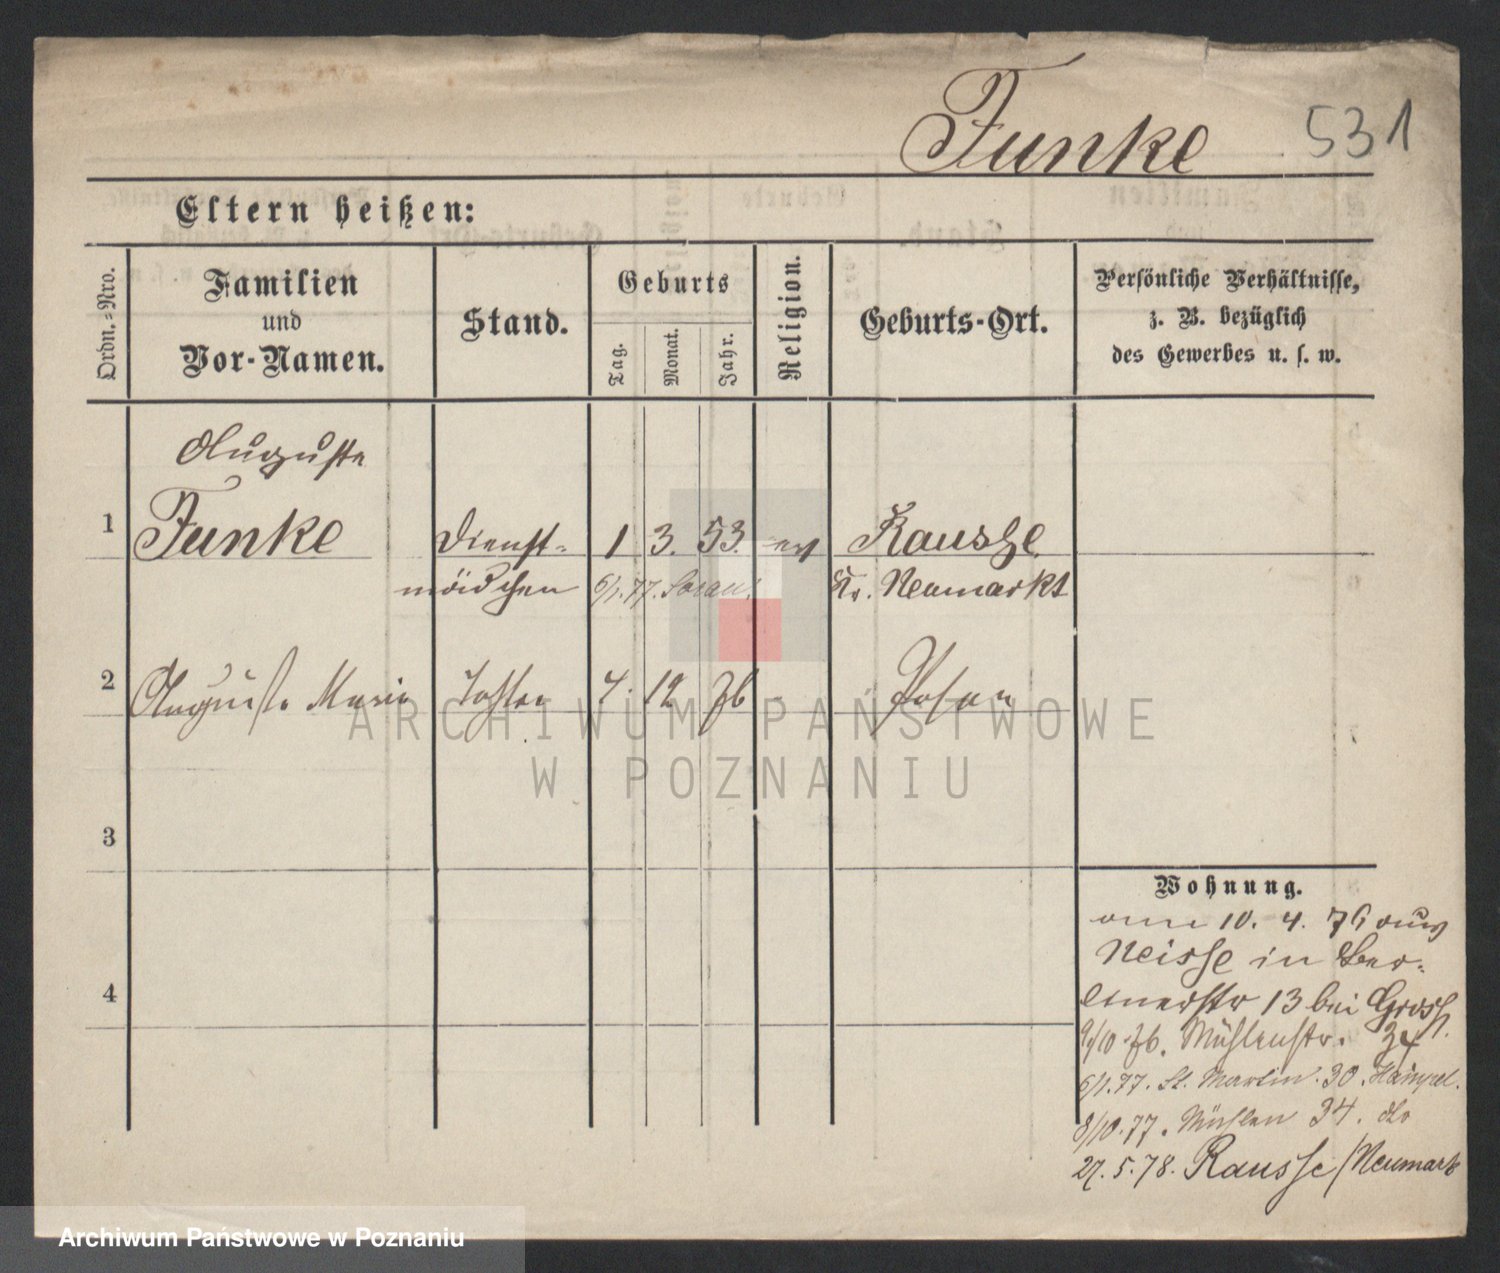 Funke 531
Eltern heißen:
Ordn.=Nro.
Familien
und
Vor-Namen.
Stand.
Geburts
Tag.
Monat.
Jahr.
Religion.
Geburts-Ort.
Persönliche Verhältnisse,
z. B. bezüglich
des Gewerbes u. s. w.
Auguste
1 Funke Dienst= 1 3. 53. ev Rausse
mädchen 6/1.77. Kr. Neumarkt
2 Auguste Marie Tochter 4. 12 76 - Posen
3
4
Wohnung.
am 10. 4. 76 aus
Neisse in Ber-
linerstr 13 bei Gross
9/10 76. Mühlenstr. 34
6/1.77. St. Martin 30. Hampel.
8/10.77. Mühlen 34. do
27. 5. 78. Rausse/Neumark
ARCHIWUM PAŃSTWOWE
W POZNANIU
Archiwum Państwowe w Poznaniu